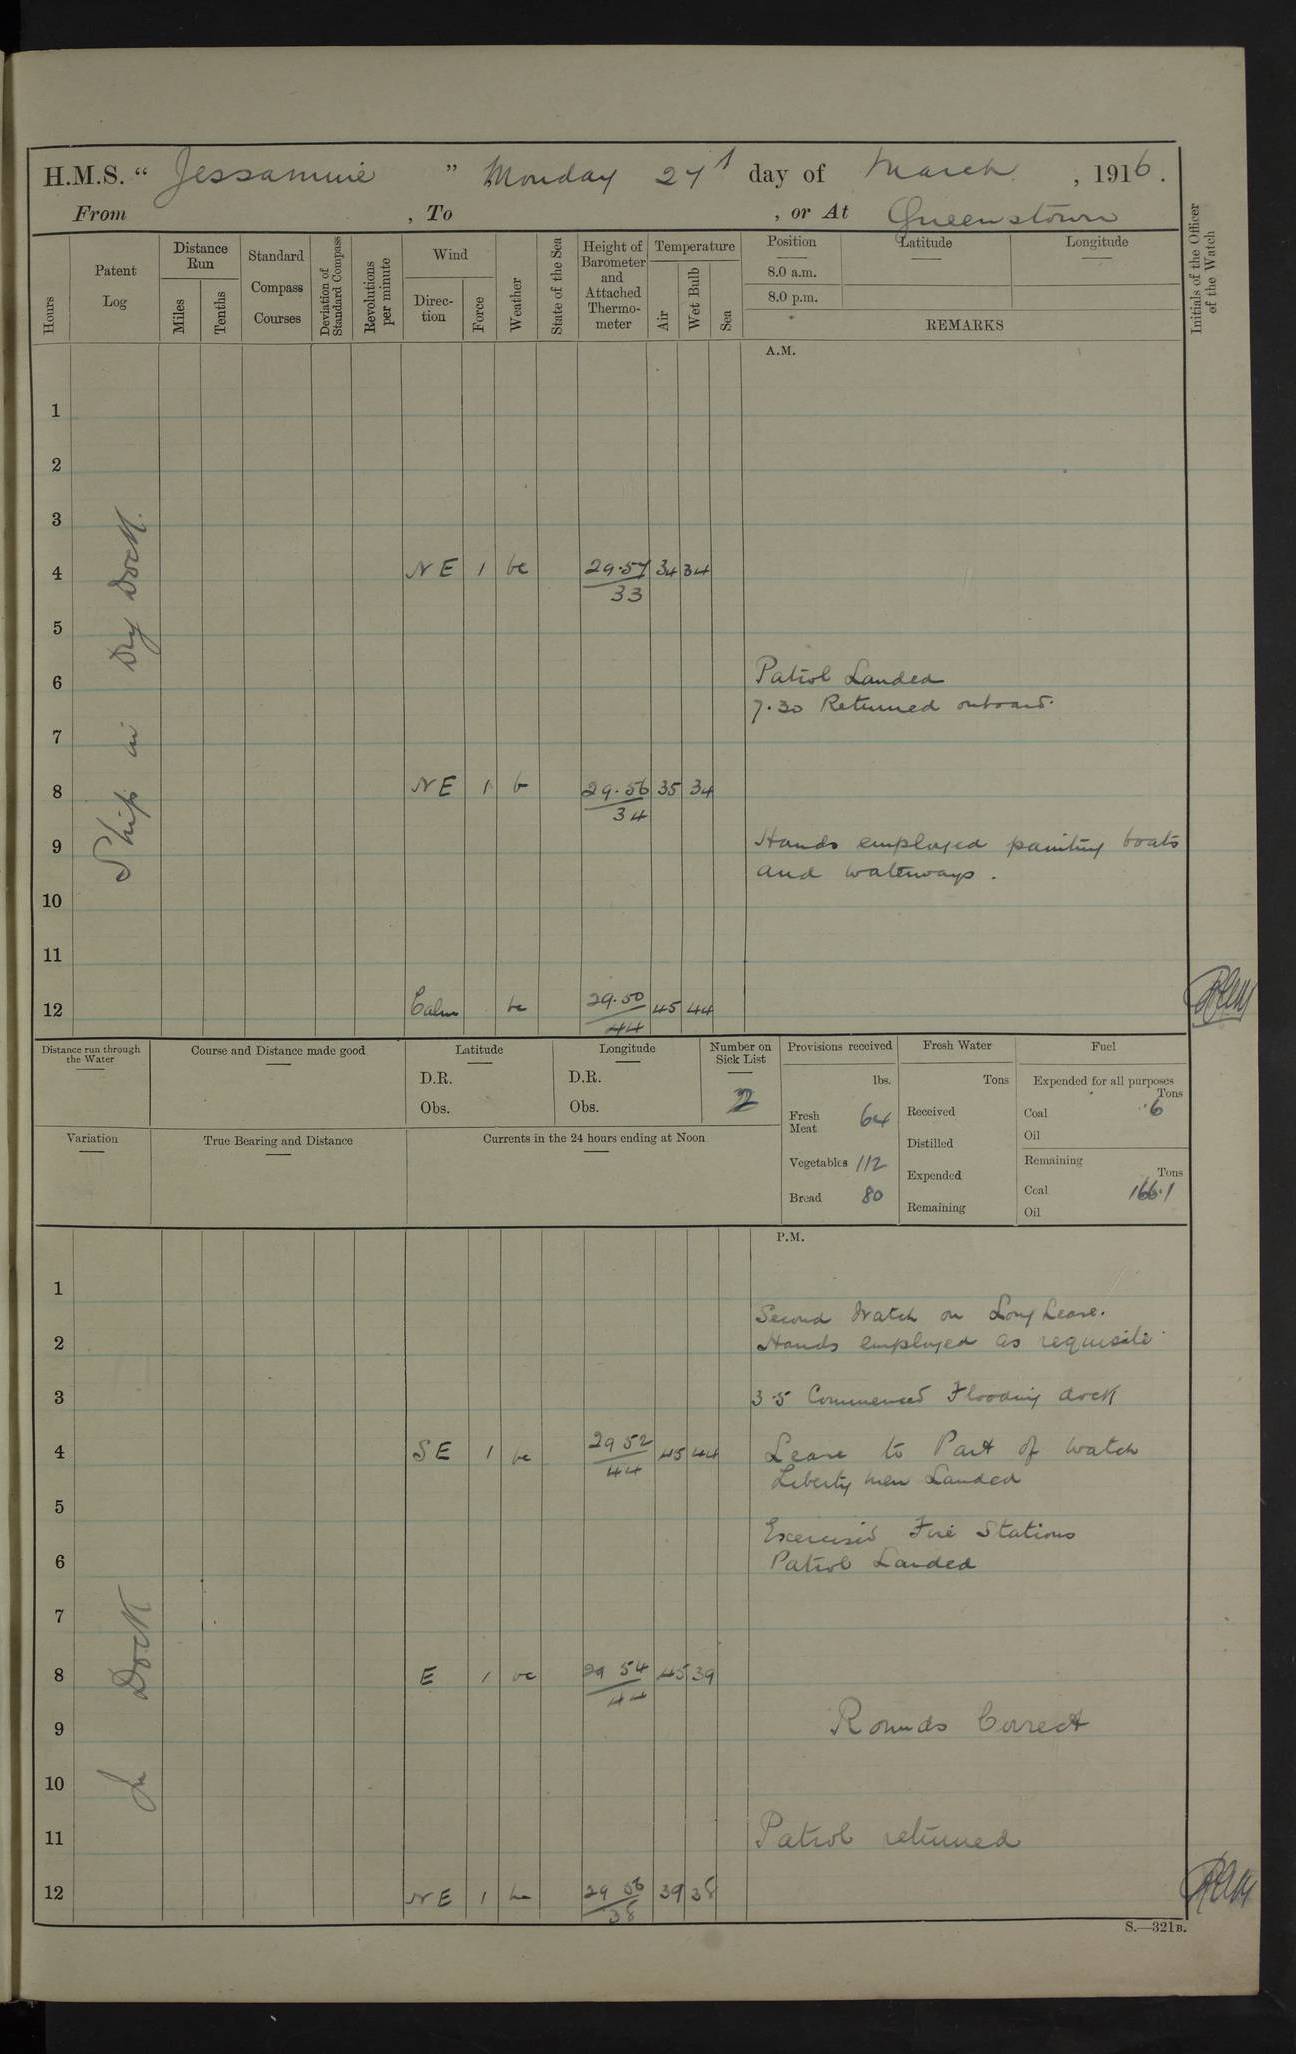 H.M.S. “ Jessamine ” Monday 27th day of March , 1916.
From , To , or At Queenstown
Hours
Patent Log
Distance Run
Miles
Tenths
Standard Compass Courses
Deviation of Standard Compass
Revolutions per minute
Wind
Direc-tion
Force
Weather
State of the Sea
Height of Barometer and Attached Thermo-meter
Temperature
Air
Wet Bulb
Sea
Position
Latitude
Longitude
8.0 a.m.
8.0 p.m.
REMARKS
Initials of the Officer of the Watch
A.M.
Ship in Dry Dock.
1
2
3
4 NE 1 bc 29.57 34 34
33
5
6 Patrol Landed
7.30 Returned onboard.
7
8 NE 1 b 29.56 35 34
34
9 Hands employed painting boats
and waterways.
10
11
12 Calm bc 29.50 45 44
44
Distance run through the Water
Course and Distance made good
Latitude
D.R.
Obs.
Longitude
D.R.
Obs.
Number on Sick List
2
Provisions received
lbs.
Fresh Meat 64
Vegetables 112
Bread 80
Fresh Water
Tons
Received
Distilled
Expended
Remaining
Fuel
Expended for all purposes
Tons
Coal .6
Oil
Remaining
Tons
Coal 166.1
Oil
Variation
True Bearing and Distance
Currents in the 24 hours ending at Noon
P.M.
In Dock
1
Second Watch on Long Leave.
2 Hands employed as requisite
3 3.5 Commenced Flooding dock
4 SE 1 bc 29 52 45 44 Leave to Part of Watch
44 Liberty men Landed
5
Exercised Fire Stations
6 Patrol Landed
7
8 E 1 bc 29 54 45 39
44
9 Rounds Correct
10
11 Patrol returned
12 NE 1 bc 29 56 39 38
38
S.—321B.